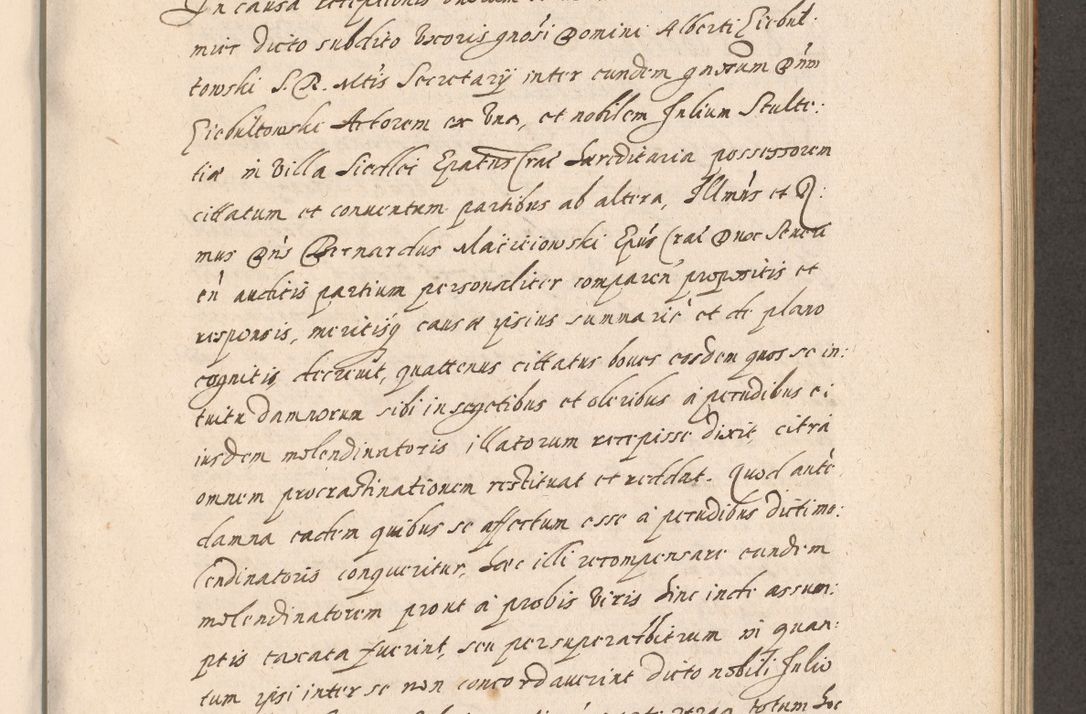 In causa receptionis
mier dicto subdito Uxoris gnosi Domini Alberti Ziebul:
towski S. R. Mtis Secretarij inter eundem gnosum Dnm
Ziebultowski Actorem ex Una, et nobilem Julium Sculte:
tiæ in Villa Sieclei Epatus Crac hæreditaria possessorem
cittatum et conuentum partibus ab altera, Illmus et R:
mus Dns Bernardus Macieiowski Epus Crac Dux Seueri
en auditis partium personaliter comparen propositis et
responsis, meritisq causæ ipsius summarie et de plano
cognitis, decreuit, quattenus cittatus boues eosdem quos se in:
tuitu damnorum sibi in segetibus et oleribus à pecudibus e:
iusdem molendinatoris illatorum recepisse dixit, citrà
omnem procrastinationem restituat et reddat. Quod antè
damna eadem quibus se affectum esse à pecudibus dicti mo:
lendinatoris conqueritur, hæc illi recompensare eundem
molendinatorem prout à probis Viris hinc inde assum:
ptis taxata fuerint, seu per superarbitrum in quan:
tum ipsi inter se non concordauerint dicto nobili Julio
totum hoc